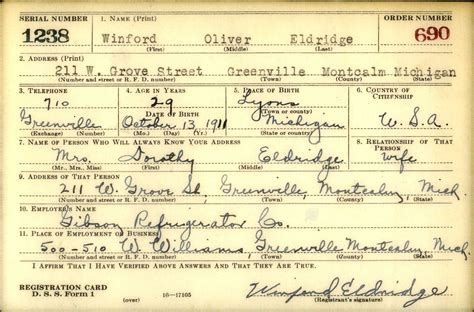 SERIAL NUMBER 1. NAME (Print) ORDER NUMBER
1238 Winford Oliver Eldridge 690
(First) (Middle) (Last)
2. ADDRESS (Print)
211 W. Grove Street Greenville Montcalm Michigan
(Number and street or R. F. D. number) (Town) (County) (State)
3. TELEPHONE 4. AGE IN YEARS 5. PLACE OF BIRTH 6. COUNTRY OF CITIZENSHIP
710 29 Lyons
DATE OF BIRTH (Town or county)
Greenville October 13, 1911 Michigan U.S.A.
(Exchange) (Number) (Mo.) (Day) (Yr.) (State or country)
7. NAME OF PERSON WHO WILL ALWAYS KNOW YOUR ADDRESS 8. RELATIONSHIP OF THAT PERSON
Mrs. Dorothy Eldridge wife
(Mr., Mrs., Miss) (First) (Middle) (Last)
9. ADDRESS OF THAT PERSON
211 W. Grove St, Greenville, Montcalm, Mich.
(Number and street or R. F. D. number) (Town) (County) (State)
10. EMPLOYER'S NAME
Gibson Refrigerator Co.
11. PLACE OF EMPLOYMENT OR BUSINESS
500-510 W. Williams, Greenville Montcalm, Mich.
(Number and street or R. F. D. number) (Town) (County) (State)
I AFFIRM THAT I HAVE VERIFIED ABOVE ANSWERS AND THAT THEY ARE TRUE.
REGISTRATION CARD
D. S. S. Form 1 (over) 16-17105 Winford Eldridge
(Registrant's signature)